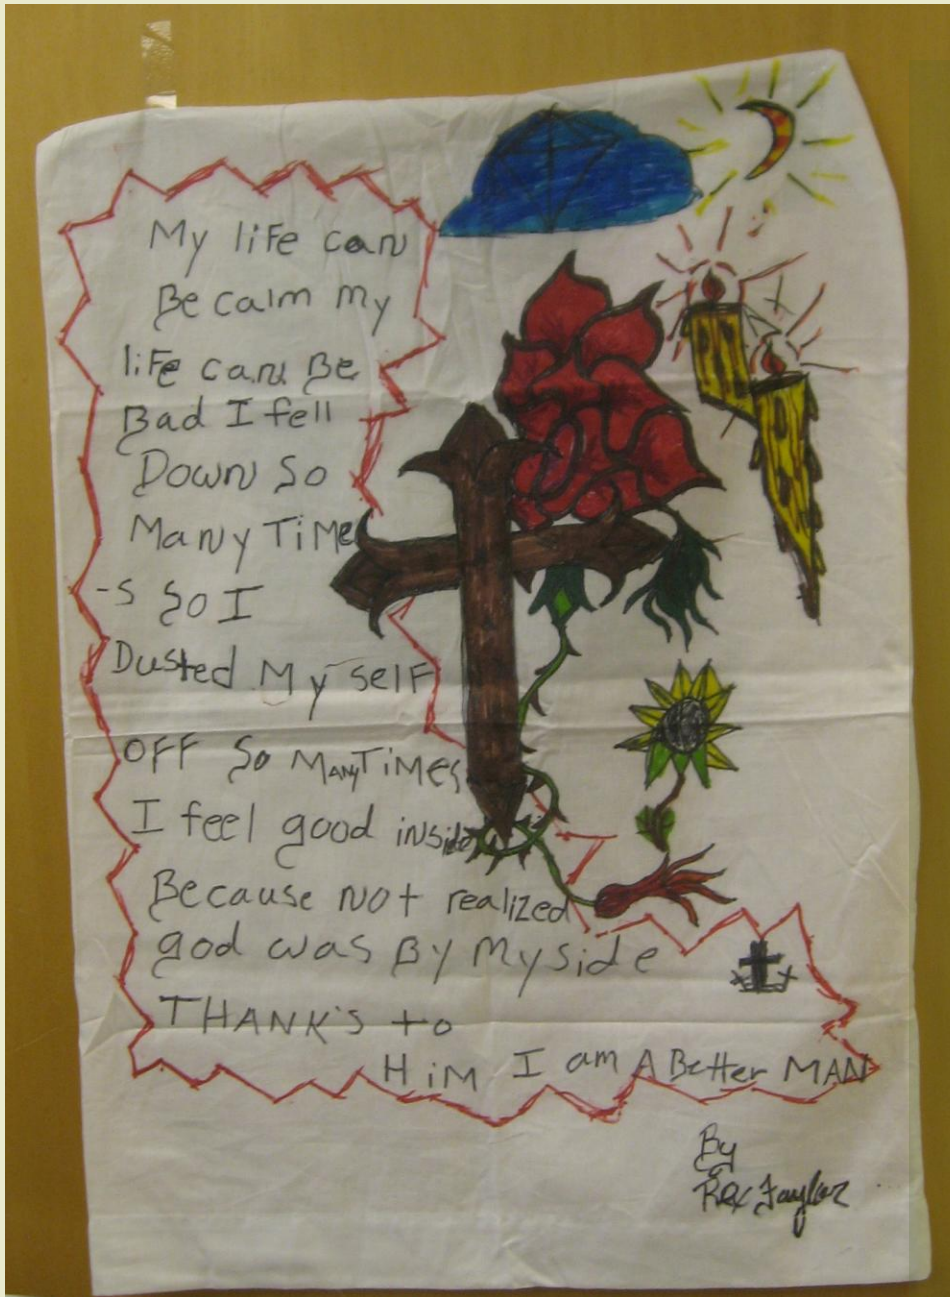 My life can
Be calm my
life can Be
Bad I fell
Down so
Many Time
-s so I
Dusted Myself
OFF so MANY Times
I feel good inside
Because not realized
god was By My side
THANK'S to
HiM I am A Better MAN
By
Rex Taylor